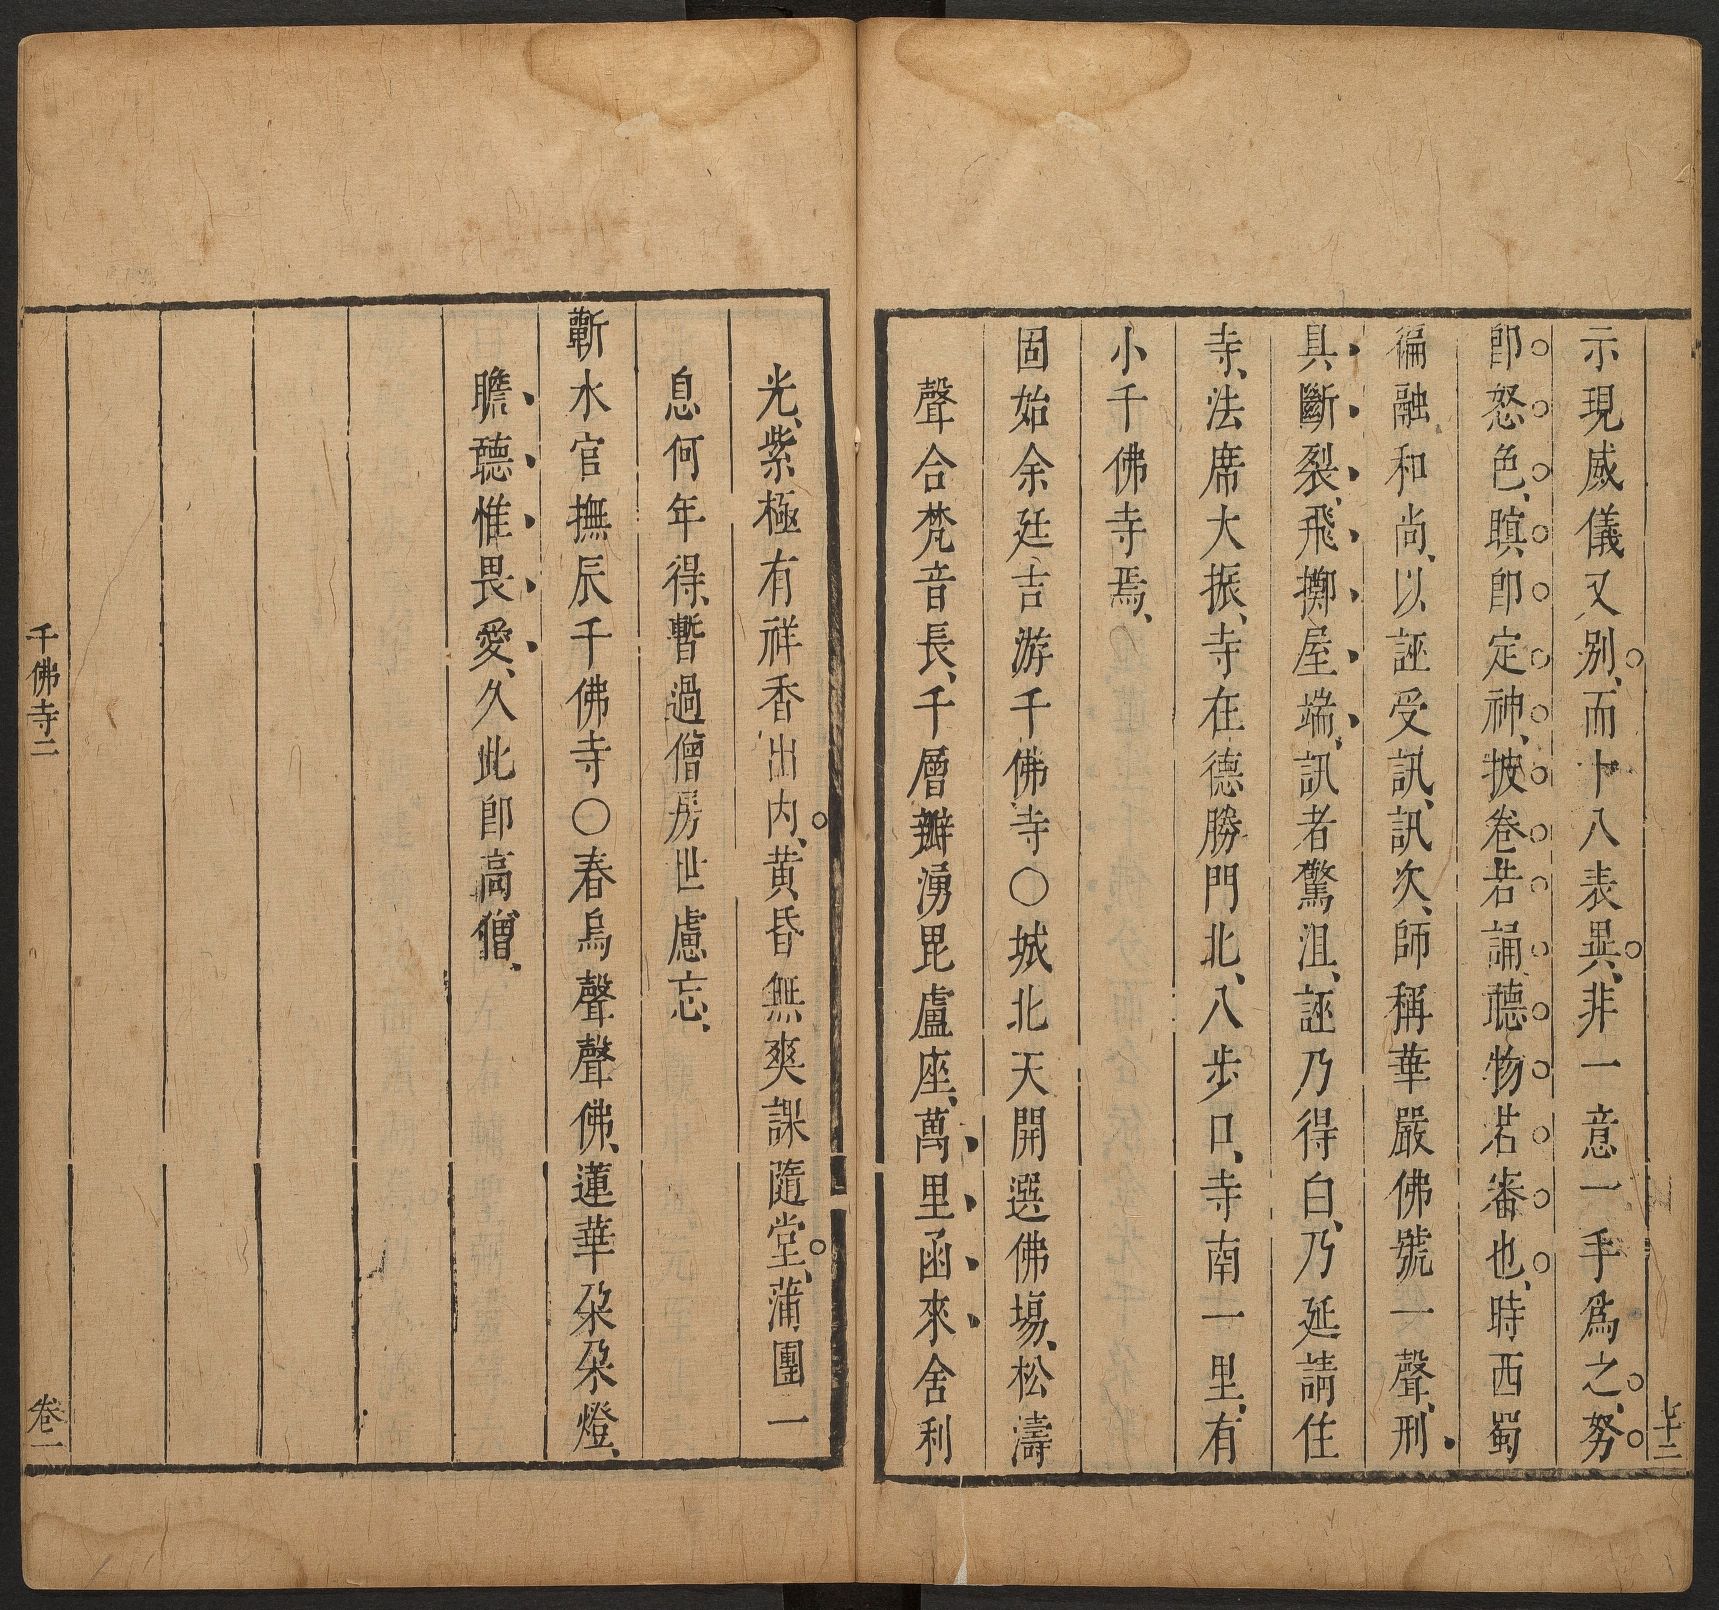 示現威儀又别、而十八表異、非一意一手爲之、努
卽怒色、瞋卽定神、披卷若誦、聽物若審也、時西蜀
徧融和尚、以誣受訊、訊次、師稱華嚴佛號一聲、刑
具斷裂、飛擲屋端、訊者驚沮、誣乃得白、乃延請住
寺、法席大振、寺在德勝門北、八步口、寺南一里、有
小千佛寺焉、
固始余廷吉游千佛寺○城北天開選佛場、松濤
聲合梵音長、千層瓣湧毘盧座、萬里函來舍利
光、紫極有祥香出內、黃昏無爽課隨堂、蒲團一
息何年得、暫過僧房世慮忘、
蘄水官撫辰千佛寺○春鳥聲聲佛、蓮華朶朶燈、
瞻聽惟畏愛、久此卽高僧、
千佛寺二
卷一
七十二